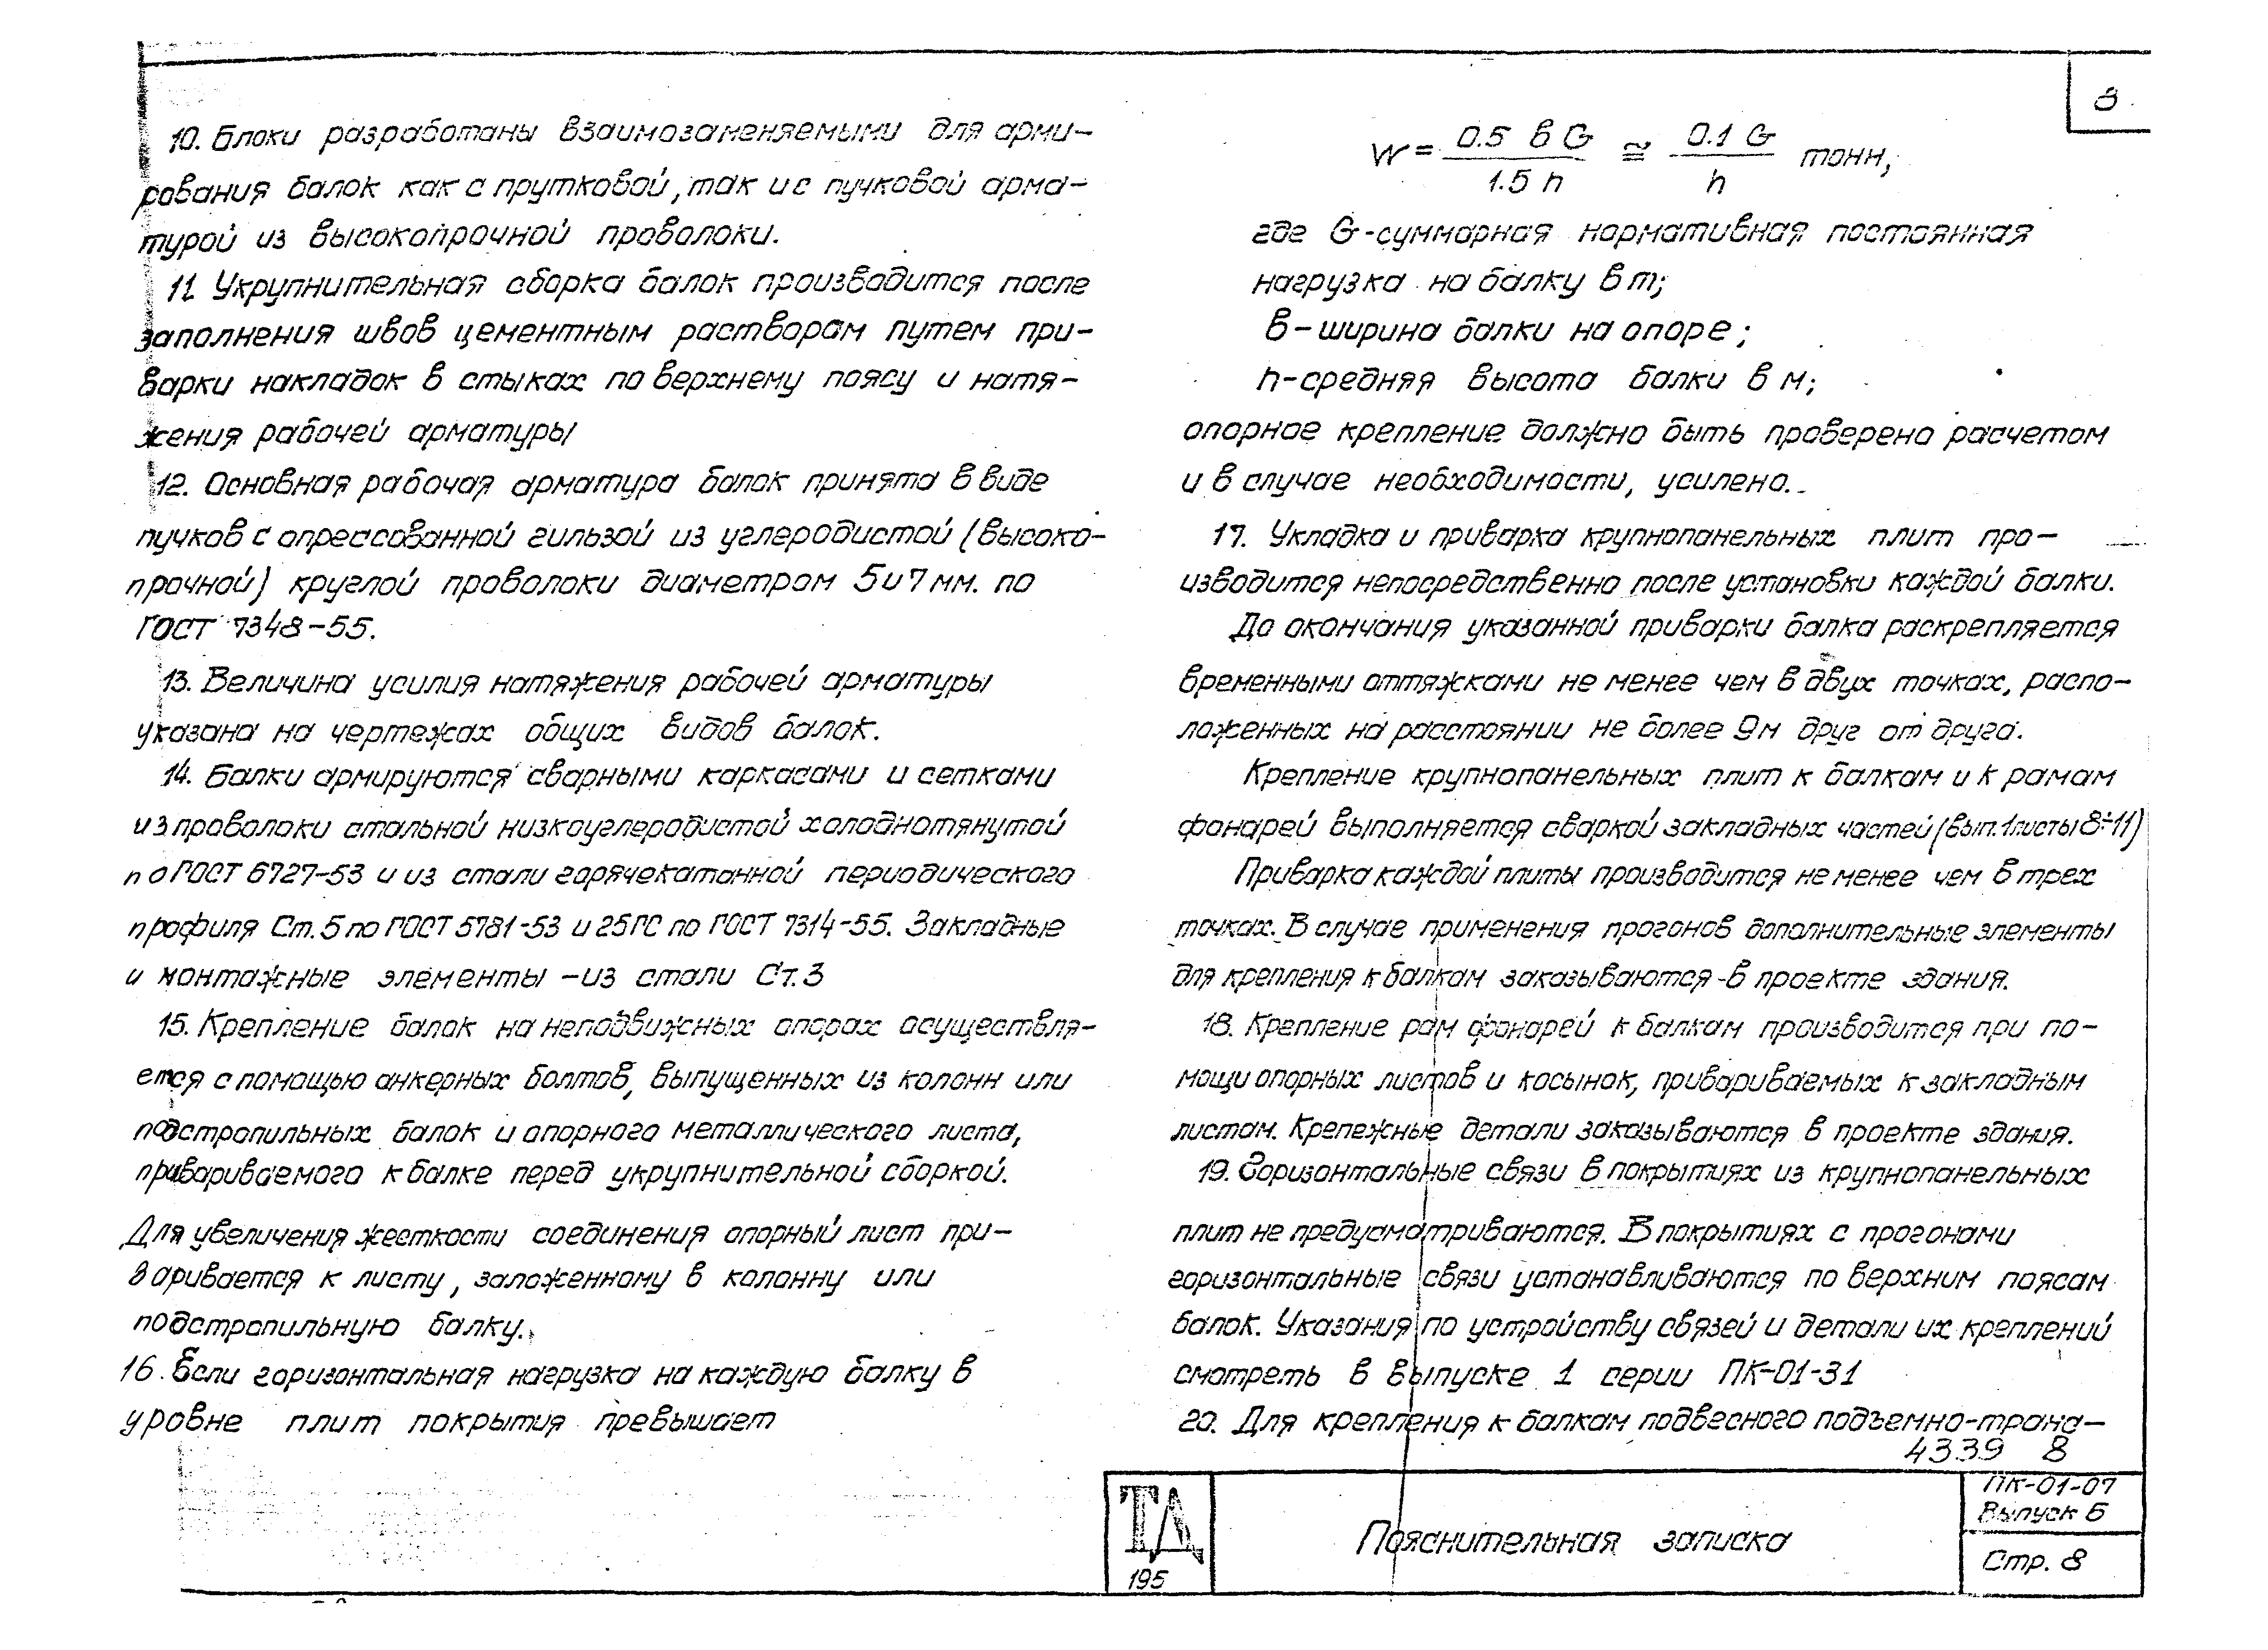 10. Блоки разработаны взаимозаменяемыми для арми-
рования балок как с прутковой, так и с пучковой арма-
турой из высокопрочной проволоки.
11. Укрупнительная сборка балок производится после
заполнения швов цементным раствором путем при-
варки накладок в стыках по верхнему поясу и натя-
жения рабочей арматуры
12. Основная рабочая арматура балок принята в виде
пучков с опрессованной гильзой из углеродистой (высоко-
прочной) круглой проволоки диаметром 5 и 7 мм. по
ГОСТ 7348-55.
13. Величина усилия натяжения рабочей арматуры
указана на чертежах общих видов балок.
14. Балки армируются сварными каркасами и сетками
из проволоки стальной низкоуглеродистой холоднотянутой
по ГОСТ 6727-53 и из стали горячекатанной периодического
профиля Ст. 5 по ГОСТ 5781-53 и 25ГС по ГОСТ 7314-55. Закладные
и монтажные элементы - из стали Ст. 3
15. Крепление балок на неподвижных опорах осуществля-
ется с помощью анкерных болтов, выпущенных из колонн или
подстропильных балок и опорного металлического листа,
привариваемого к балке перед укрупнительной сборкой.
Для увеличения жесткости соединения опорный лист при-
варивается к листу, заложенному в колонну или
подстропильную балку.
16. Если горизонтальная нагрузка на каждую балку в
уровне плит покрытия превышает
8
W = 0.5 в G / 1.5 h ≅ 0.1 G / h тонн,
где G - суммарная нормативная постоянная
нагрузка на балку в т;
в - ширина балки на опоре;
h - средняя высота балки в м;
опорное крепление должно быть проверено расчетом
и в случае необходимости, усилено.
17. Укладка и приварка крупнопанельных плит про-
изводится непосредственно после установки каждой балки.
До окончания указанной приварки балка раскрепляется
временными оттяжками не менее чем в двух точках, распо-
ложенных на расстоянии не более 9 м друг от друга.
Крепление крупнопанельных плит к балкам и к рамам
фонарей выполняется сваркой закладных частей (вып. 1 листы 8÷11)
Приварка каждой плиты производится не менее чем в трех
точках. В случае применения прогонов дополнительные элементы
для крепления к балкам заказываются - в проекте здания.
18. Крепление рам фонарей к балкам производится при по-
мощи опорных листов и косынок, привариваемых к закладным
листам. Крепежные детали заказываются в проекте здания.
19. Горизонтальные связи в покрытиях из крупнопанельных
плит не предусматриваются. В покрытиях с прогонами
горизонтальные связи устанавливаются по верхним поясам
балок. Указания по устройству связей и детали их креплений
смотреть в выпуске 1 серии ПК-01-31
20. Для крепления к балкам подвесного подъемно-транс-
4339 8
ТД
195
Пояснительная записка
ПК-01-07
Выпуск 6
Стр. 8